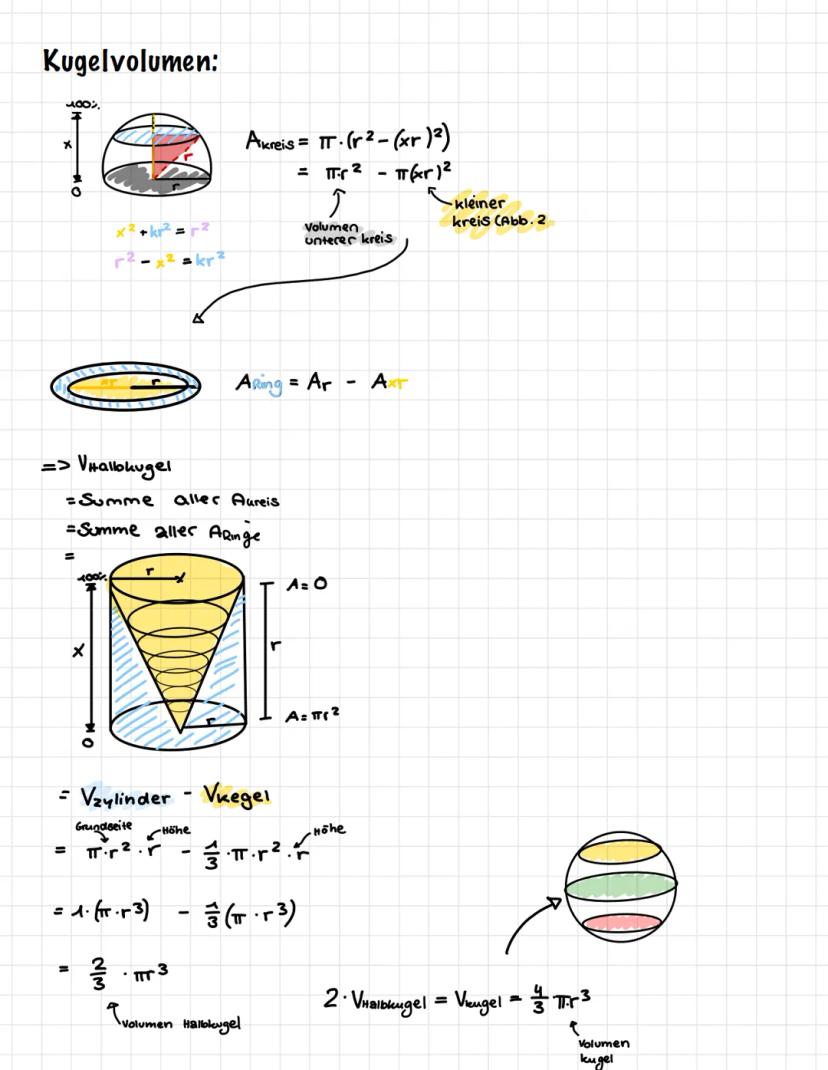 Kugelvolumen:
100%
x
0
r
r
A Kreis = π·(r² - (xr)²)
= π·r² - π(xr)²
kleiner
kreis (Abb. 2
Volumen
unterer kreis
x² + kr² = r²
r² - x² = kr²
xr r
A Ring = Ar - Axr
=> VHalbkugel
= Summe aller AKreis
= Summe aller ARinge
=
100%
r
A = 0
x
r
r
A = πr²
0
= VZylinder - VKegel
Grundseite Höhe Höhe
= π·r²·r - 1/3·π·r²·r
= 1·(π·r³) - 1/3(π·r³)
= 2/3 · πr³
Volumen Halbkugel
2·VHalbkugel = Vkugel = 4/3 π·r³
Volumen
kugel